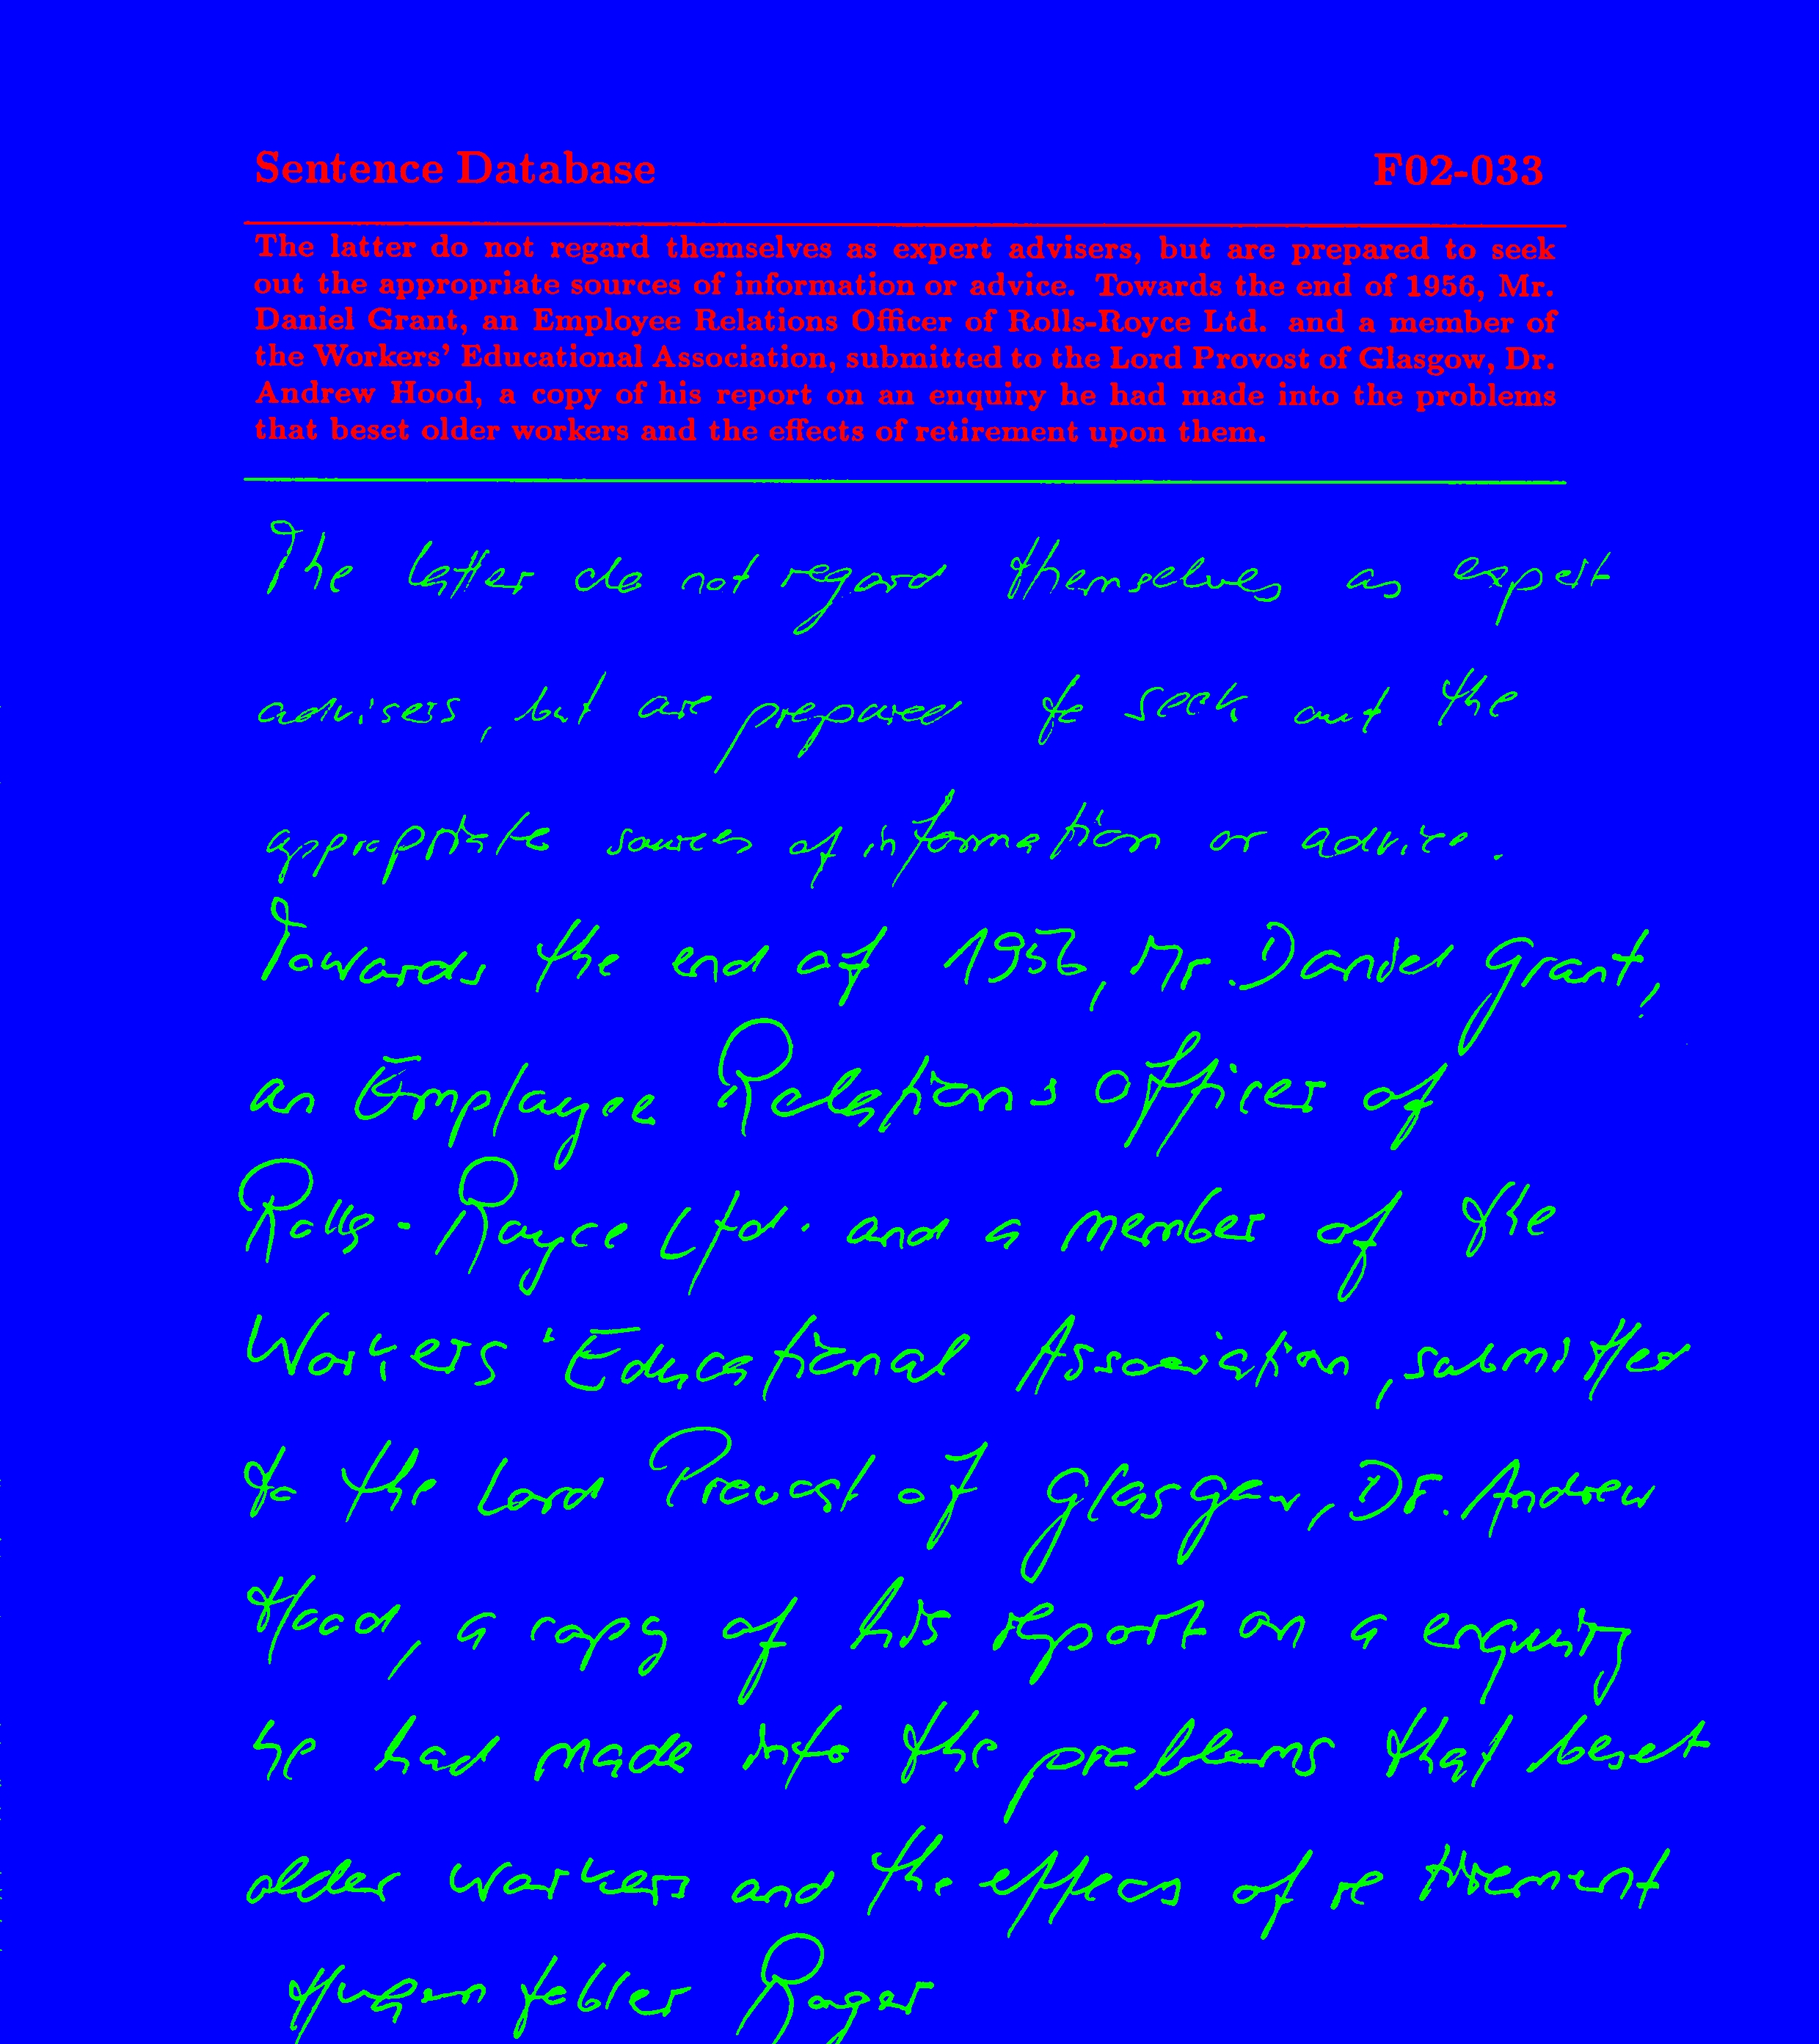 Sentence Database F02-033
The latter do not regard themselves as expert advisers, but are prepared to seek
out the appropriate sources of information or advice. Towards the end of 1956, Mr.
Daniel Grant, an Employee Relations Officer of Rolls-Royce Ltd. and a member of
the Workers' Educational Association, submitted to the Lord Provost of Glasgow, Dr.
Andrew Hood, a copy of his report on an enquiry he had made into the problems
that beset older workers and the effects of retirement upon them.
The latter do not regard themselves as expert
advisers, but are prepared to seek out the
appropriate sources of information or advice.
Towards the end of 1956, Mr. Daniel Grant,
an Employee Relations Officer of
Rolls-Royce Ltd. and a member of the
Workers' Educational Association, submitted
to the Lord Provost of Glasgow, Dr. Andrew
Hood, a copy of his report on a enquiry
he had made into the problems that beset
older workers and the effects of retirement
Roger